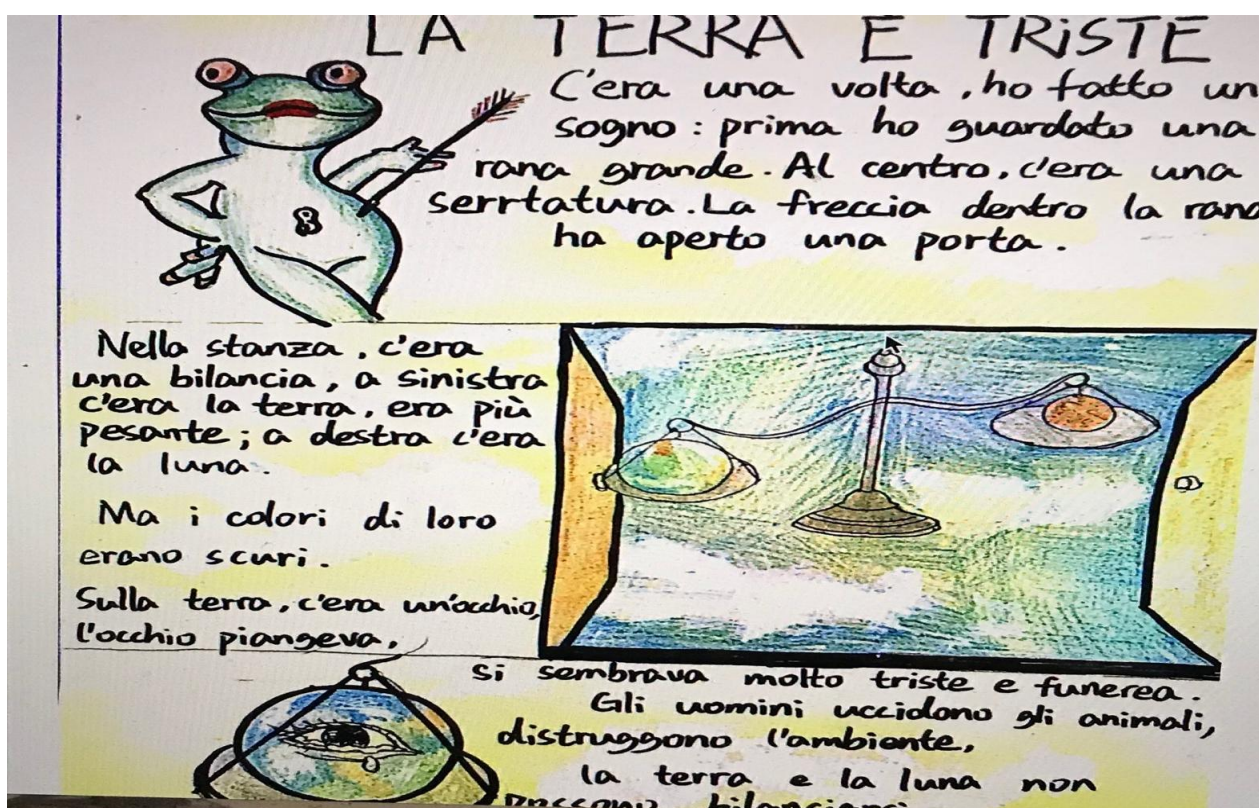 LA TERRA E TRiSTE
C'era una volta, ho fatto un
sogno: prima ho guardato una
rana grande. Al centro, c'era una
serrtatura. La freccia dentro la rana
ha aperto una porta.
Nella stanza, c'era
una bilancia, a sinistra
c'era la terra, era più
pesante; a destra c'era
la luna.
Ma i colori di loro
erano scuri.
Sulla terra, c'era un'occhio,
l'occhio piangeva.
Si sembrava molto triste e funerea.
Gli uomini uccidono gli animali,
distruggono l'ambiente,
la terra e la luna non
possono bilanciarsi